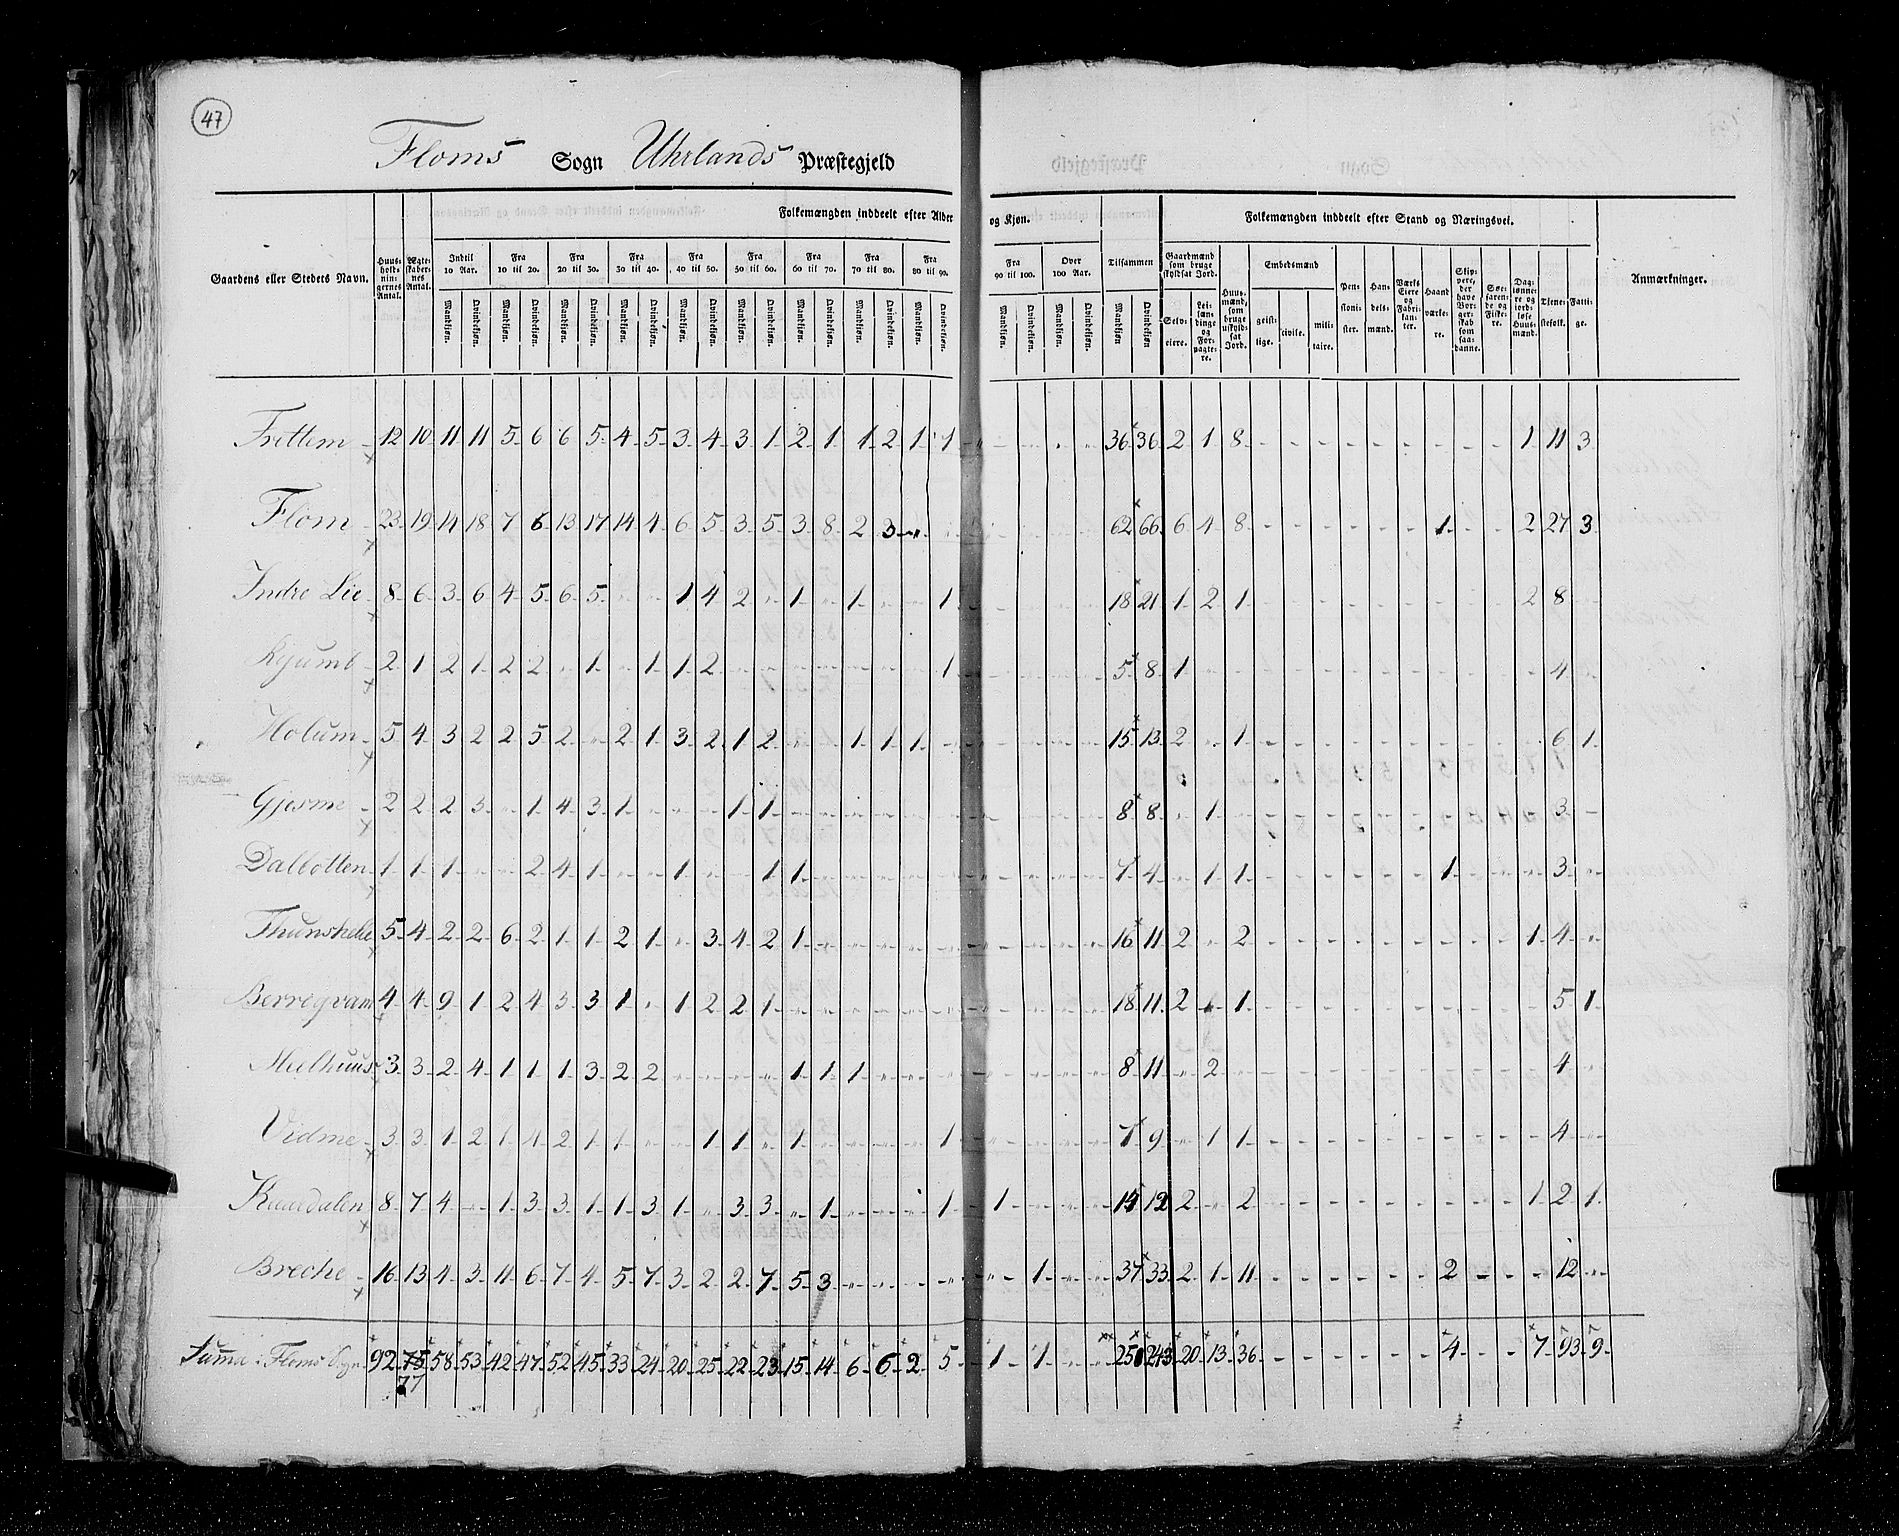 47
Floms Sogn Uhrlands Præstegjeld
Folkemængden inddeelt efter Alder og Kjøn. Folkemængden inddeelt efter Stand og Næringsvei.
Gaardens eller Stedets Navn. Huusholdningernes Antal. Ægteskabernes Antal. Indtil 10 Aar. Fra 10 til 20. Fra 20 til 30. Fra 30 til 40. Fra 40 til 50. Fra 50 til 60. Fra 60 til 70. Fra 70 til 80. Fra 80 til 90. Fra 90 til 100. Over 100 Aar. Tilsammen Gaardmænd som bruge skyldsat Jord. Huusmænd, som bruge uskyldsat Jord. Embedsmænd Pensionister. Handelsmænd. Værks Eiere og Fabrikanter. Haandværkere. Skippere, der have Borgerskab som saadanne. Søefarende og Fiskere. Daglønnere og jordløse Huusmænd. Tjenestefolk. Fattige. Anmærkninger.
Mandkjøn. Qvindekjøn. Mandkjøn. Qvindekjøn. Mandkjøn. Qvindekjøn. Mandkjøn. Qvindekjøn. Mandkjøn. Qvindekjøn. Mandkjøn. Qvindekjøn. Mandkjøn. Qvindekjøn. Mandkjøn. Qvindekjøn. Mandkjøn. Qvindekjøn. Mandkjøn. Qvindekjøn. Mandkjøn. Qvindekjøn. Mandkjøn Qvindekjøn. Selveiere. Leilændinge og Forpagtere. geistlige. civile. militaire.
Frettem 12 10 11 11 5 6 6 5 4 5 3 4 3 1 2 1 1 2 1 1 36 36 2 1 8 1 11 3
Flom 23 19 14 18 7 6 13 17 14 4 6 5 3 5 3 8 2 3 62 66 6 4 8 1 2 27 3
Indre Lie 8 6 3 6 4 5 6 5 1 4 2 1 1 1 18 21 1 2 1 2 8
2 1 2 1 2 2 1 1 1 2 1 5 8 1 4
Holum 5 4 3 2 2 5 2 2 1 3 2 1 2 1 1 1 15 13 2 1 6 1
Gjosme 2 2 2 3 1 4 3 1 1 1 8 8 1 3
Dalbotten 1 1 1 2 4 1 1 1 1 7 4 1 1 1 3
5 4 2 2 6 2 1 1 2 1 3 4 2 1 16 11 2 2 1 4
Berreqvam 4 4 9 1 2 4 3 3 1 1 2 2 1 18 11 2 1 5 1
Meelhuus 3 3 2 4 1 1 1 3 2 2 1 1 1 8 11 2 4
Vidme 3 3 1 2 1 4 2 1 1 1 1 1 1 7 9 1 1 4
Kaardalen 8 7 4 1 3 3 1 1 3 1 3 3 1 1 1 2 2 1 2 1
Breche 16 13 4 3 11 6 7 4 5 7 3 2 2 7 5 3 1 37 33 2 1 11 2 12
Suma i Floms Sogn 92 75 58 53 42 47 52 45 33 24 20 25 22 23 15 14 6 6 2 5 1 1 243 20 13 36 4 7 93 9
77